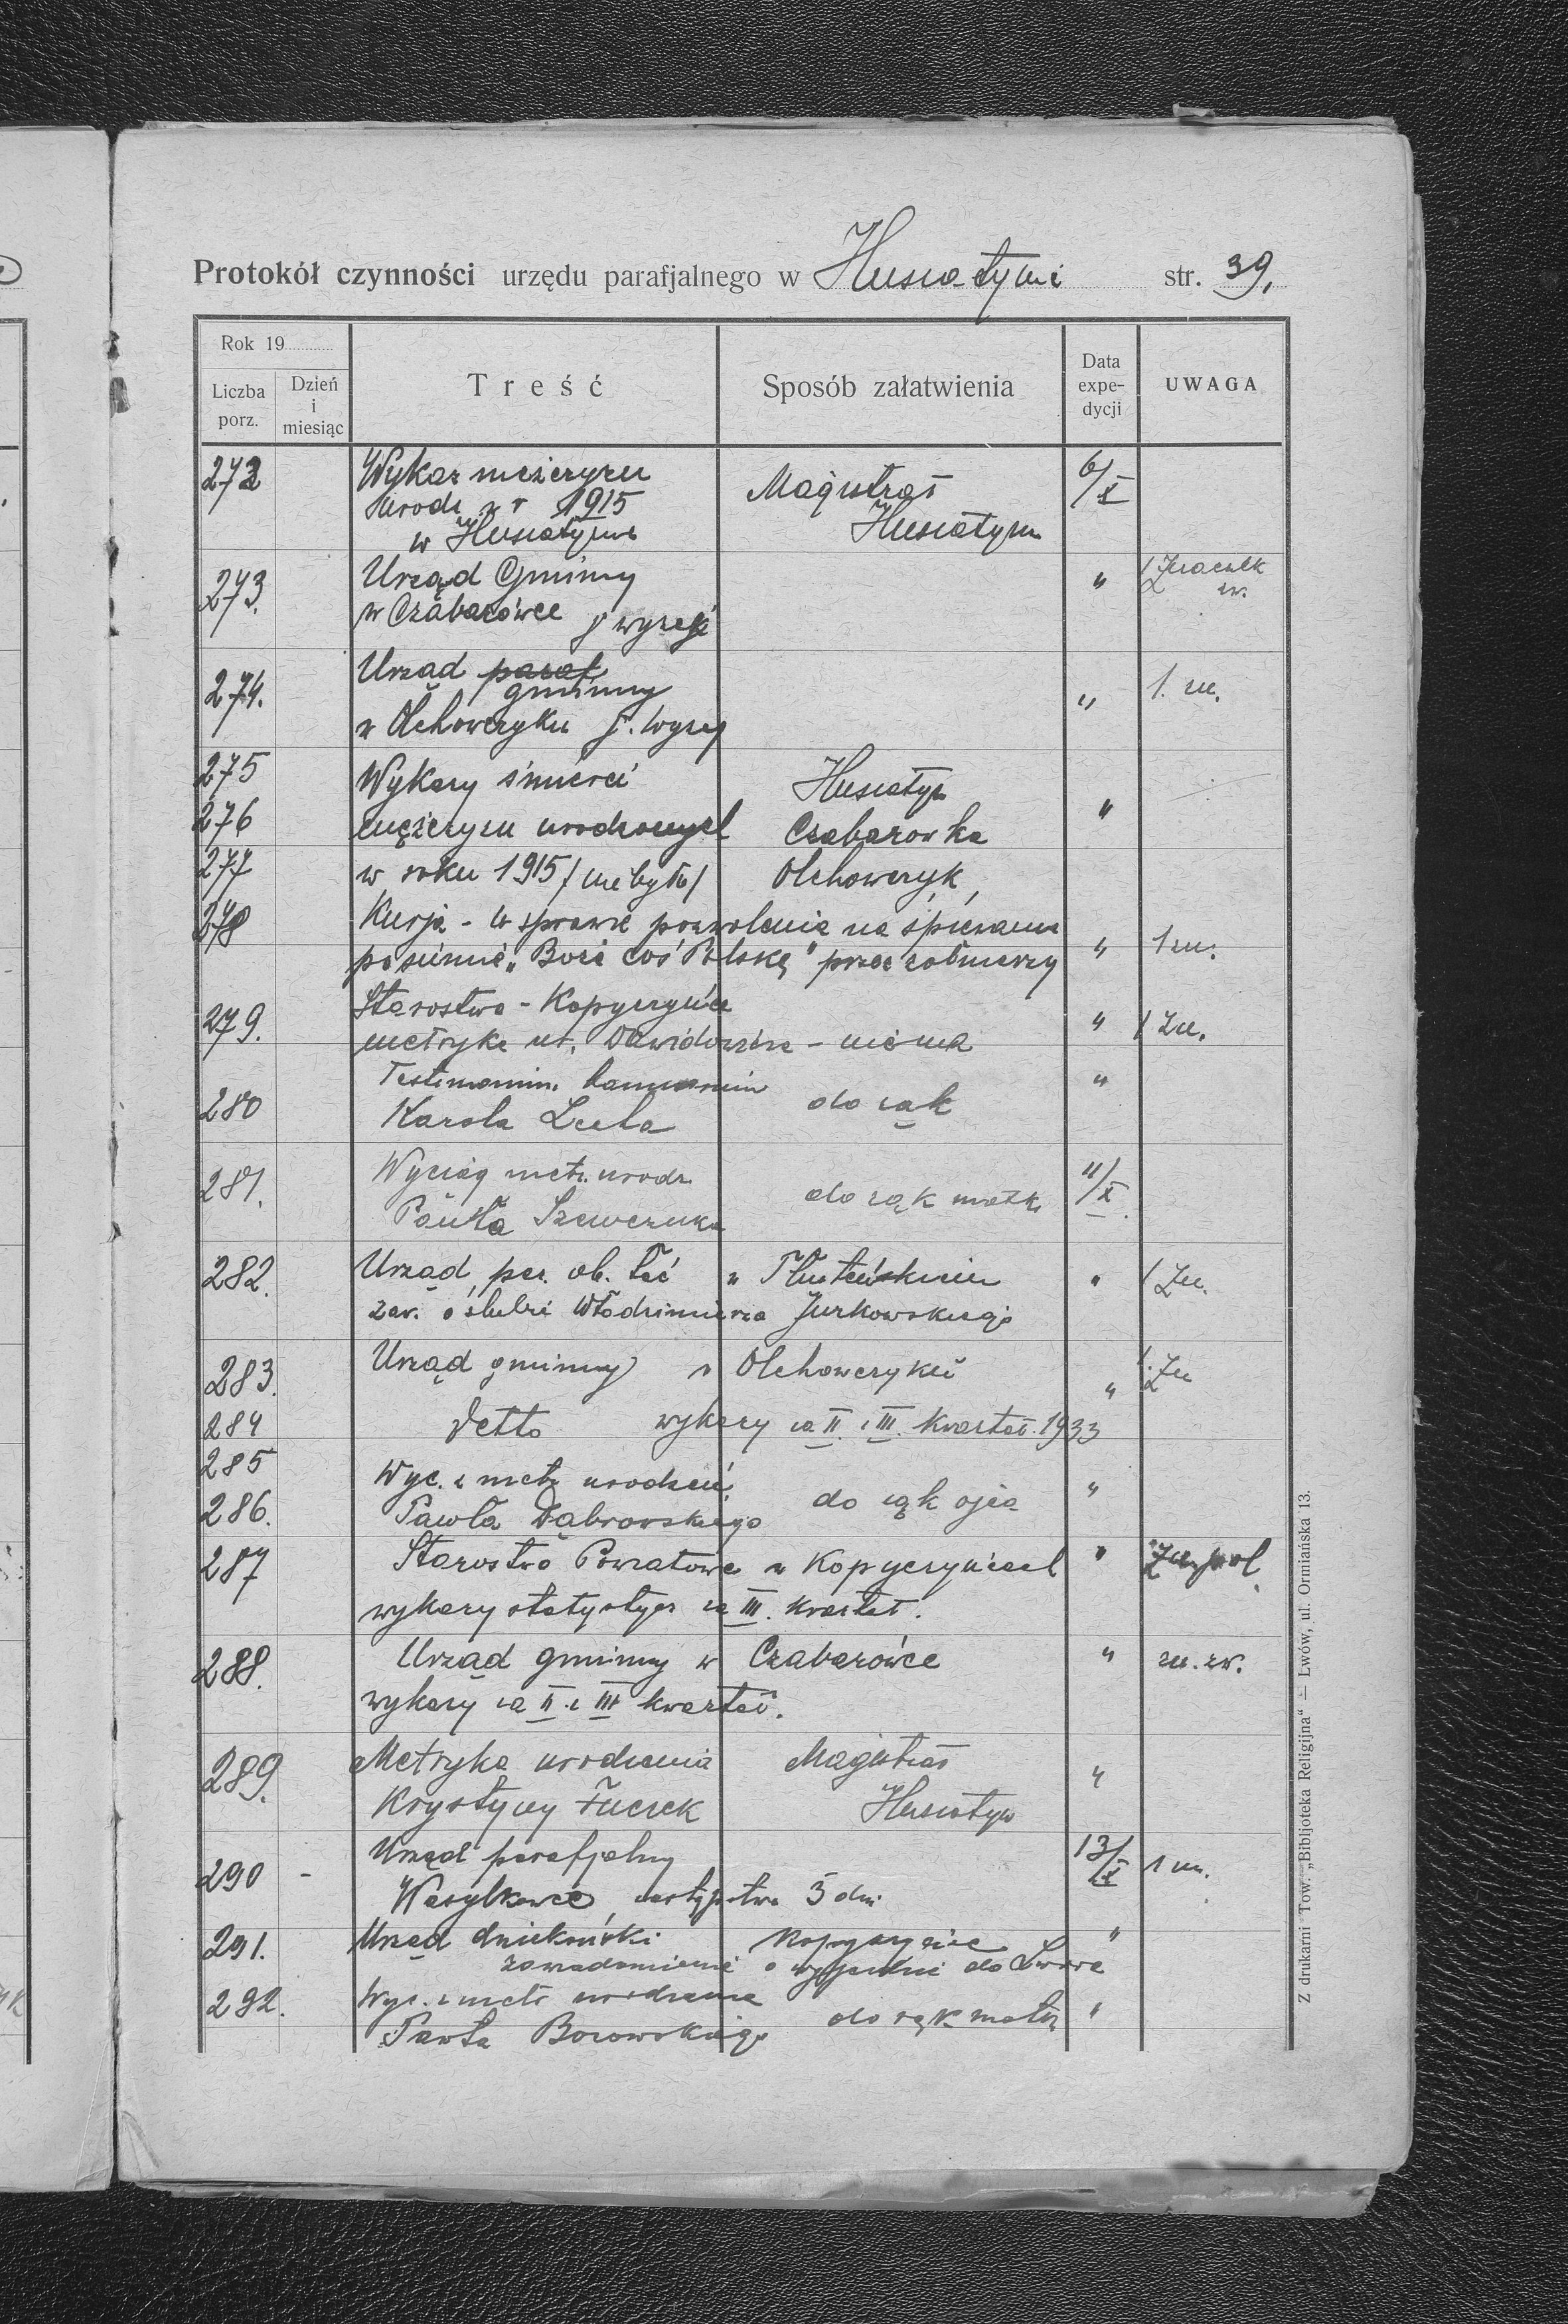 Protokół czynności urzędu parafjalnego w Husiatyni str. 39.
Rok 19
Liczba porz.
Dzień i miesiąc
Treść
Sposób załatwienia
Data expedycji
UWAGA
272 Wykaz mężczyzn 6/X
urodz. w r 1915 Magistrat
w Husiatynie Husiatyn
273. Urząd Gminny " 1 Znaczek
w Czabarówce j wyżej zw.
274. Urząd paraf
gminny " 1. zn.
w Olchowczyku j. wyżej
275 Wykazy śmierci Husiatyn
276 mężczyzn urodzonych Czabarowka "
277 w roku 1915 / nie było / Olchowczyk
278 Kurja - w sprawie pozwolenia na śpiewanie
po sumie „Boże coś Polskę" przez żołnierzy " 1 zn.
279. Starostwo - Kopyczyńce
metryka ur. Dawidowicza - niema " 1 Zn.
280 Testimonium bannorum "
Karola do rąk
281. Wyciąg metr. urodz. 11/X
Pawła Szewczuka do rąk matki
282. Urząd par. ob. łać w Tłusteńskiem " 1 Zn.
zaw. o ślubie Włodzimierza Jurkowskiego
283. Urząd gminny w Olchowczyku " 1. Zn
284 Detto wykazy za II. i III. kwartał 1933
285 Wyc. z metr urodzeń
286. Pawła Dąbrowskiego do rąk ojca "
287 Starostwo Powiatowe w Kopyczyńcach "
wykazy statystycz za III. kwartał.
288. Urząd gminny w Czabarówce " zn. zw.
wykazy za II i III kwartał.
289. Metryka urodzenia Magistrat
Krystyny Husiatyn "
290 - Urząd parafjalny 13/X 1 zn.
Wasylkowce, zastępstwo 3 dni
291. Urząd dziekański Kopyczyńce "
zawiadomienie o wyjeździe do Lwowa
292. Wyc. z metr urodzenia
Pawła Borowskiego do rąk matki "
Z drukarni Tow. „Bibljoteka Religijna" — Lwów, ul. Ormiańska 13.